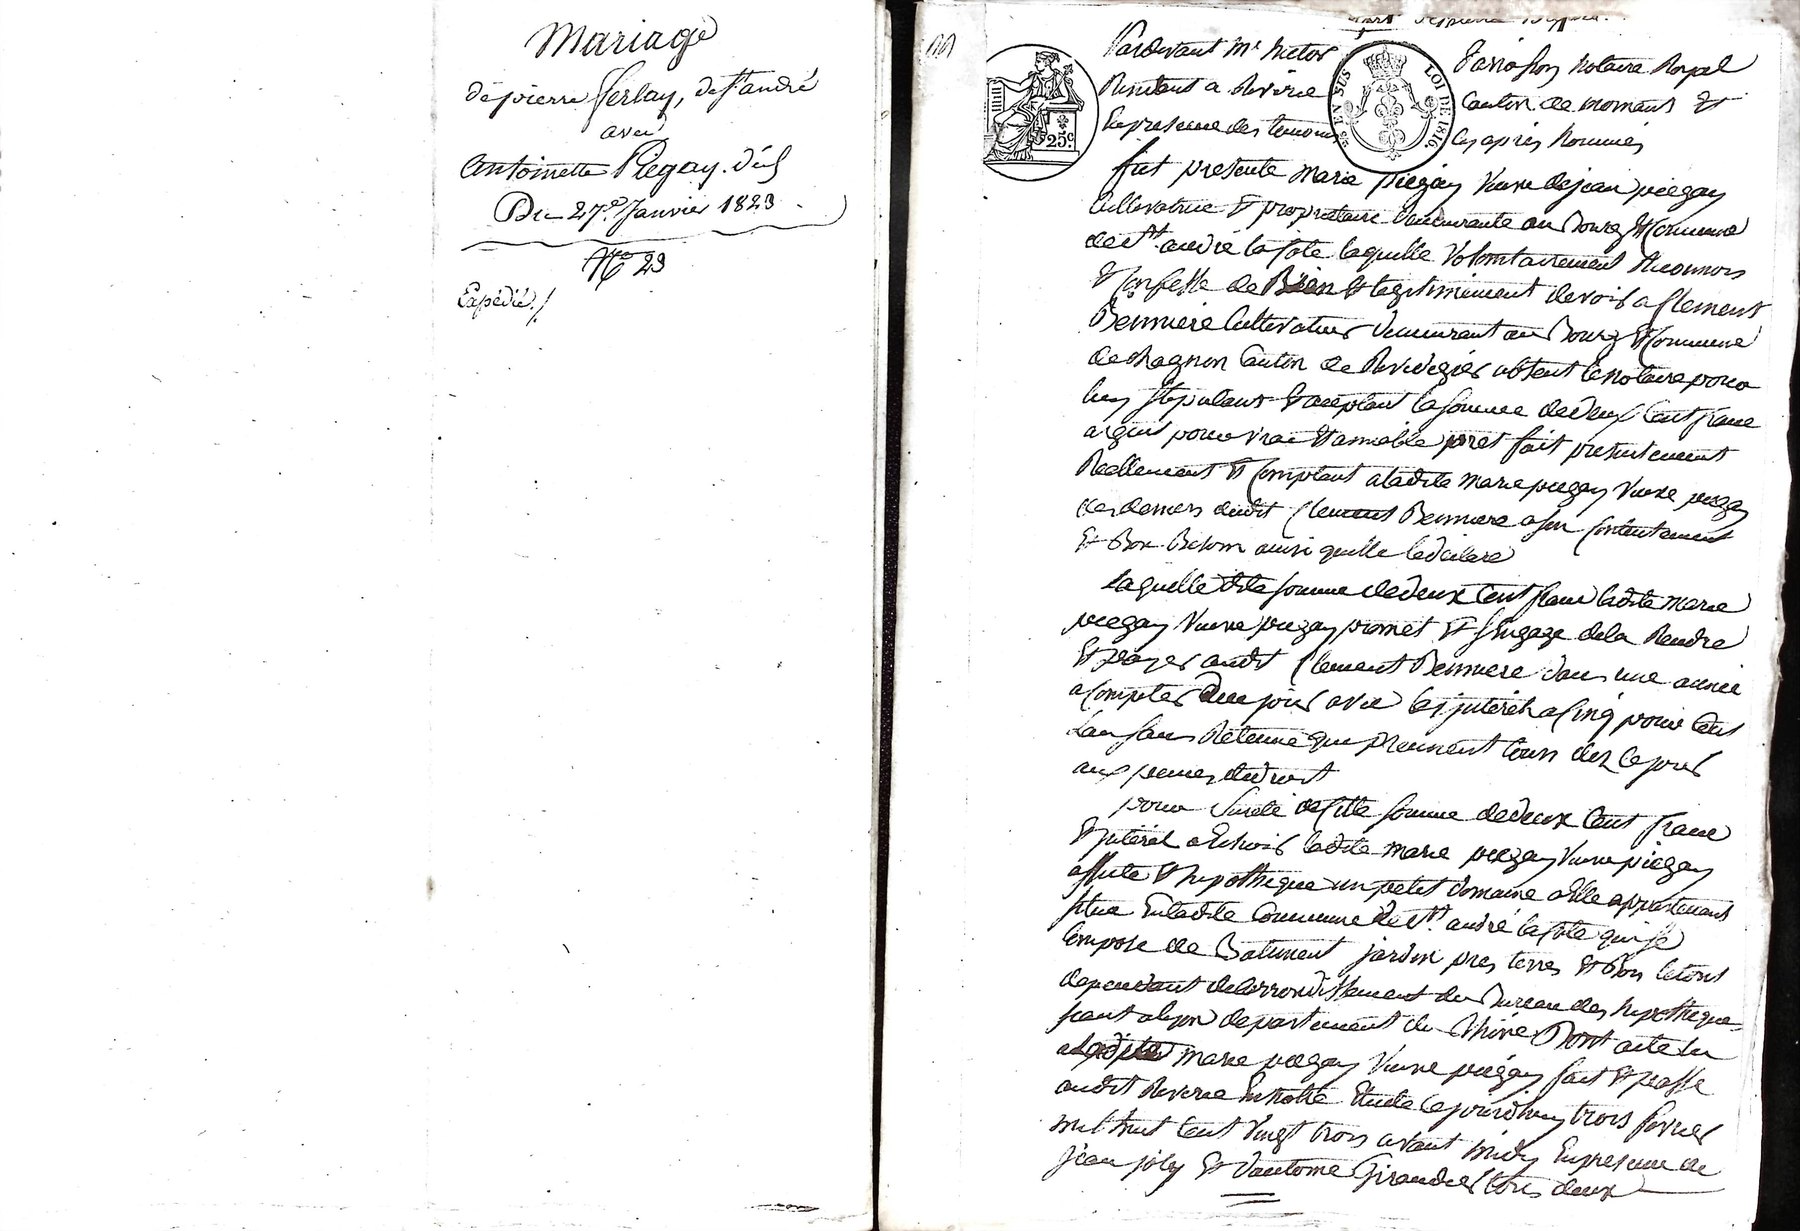 Mariage
de pierre Ferlay, de St andré
avec
Antoinette Piegay. d'id
Du 27e. Janvier 1823.
No 23
Expédié./.
Pardevant Me Victor Notaire Royal
Residant a Riverie Canton de mornant Et
En presence des temoins cy après Nommés
25 EN SUS
LOI DE 1816
25c
fut presente marie piegay Veuve de jean piegay
Cultivatrice Et propriétaire demeurante au Bourg Et Commune
de St. andré la Cote laquelle Volontairement Reconnois
Et Confesse de Bien Et legitimement devoir a Clement
Bernniere Cultivateur demeurant au Bourg Et Commune
de Chagnon Canton de Rivedegier absent le notaire pour
luy stipulant Et acceptant la somme de deux Cent franc
argent pour vrai Et amiable prêt fait presentement
Reellement Et Comptant a ladite marie piegay Veuve piegay
des deniers dudit Clement Bernniere a son Contentement
Et Bon Besoin ainsi quelle le déclare
laquelle dite somme de deux Cent franc ladite Marie
piegay Veuve piegay promet Et s'engage de la Rendre
Et payer audit Clement Bernniere dans une année
a Compter de ce jour avec les jnterêts a Cinq pour Cent
L'an sans Retenue qui prennent Cours dez ce jour
aux peines de droit
pour Sureté de cette somme de deux Cent franc
Et jnterêt a Echoir ladite marie piegay Veuve piegay
affecte Et hypothèque un petit domaine a Elle appartenant
situé En ladite Commune de St. andré la Cote qui se
Compose de Batiment jardin prés terres Et Bois le tout
dependant de l'arrondissement du Bureau des hypotheques
seant a lyon département du Rhône Dont acte lu
a ladite marie piegay Veuve piegay fait Et passé
audit Riverie En notre Etude Ce jourd'huy trois fevrier
mil huit Cent Vingt trois avant midy En presence de
jean joly Et tous deux